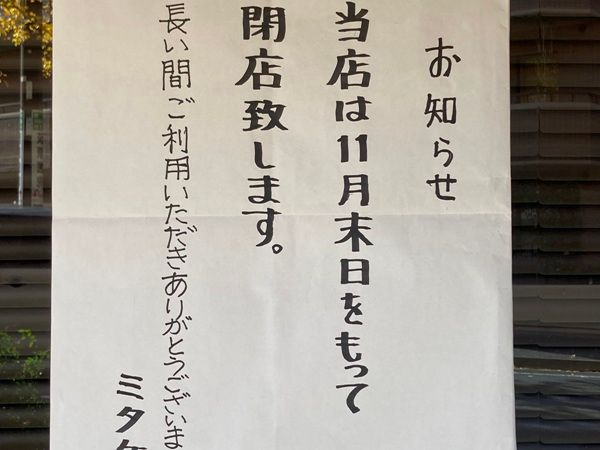 お知らせ
当店は11月末日をもって
閉店致します。
長い間ご利用いただきありがとうございま
ミタ